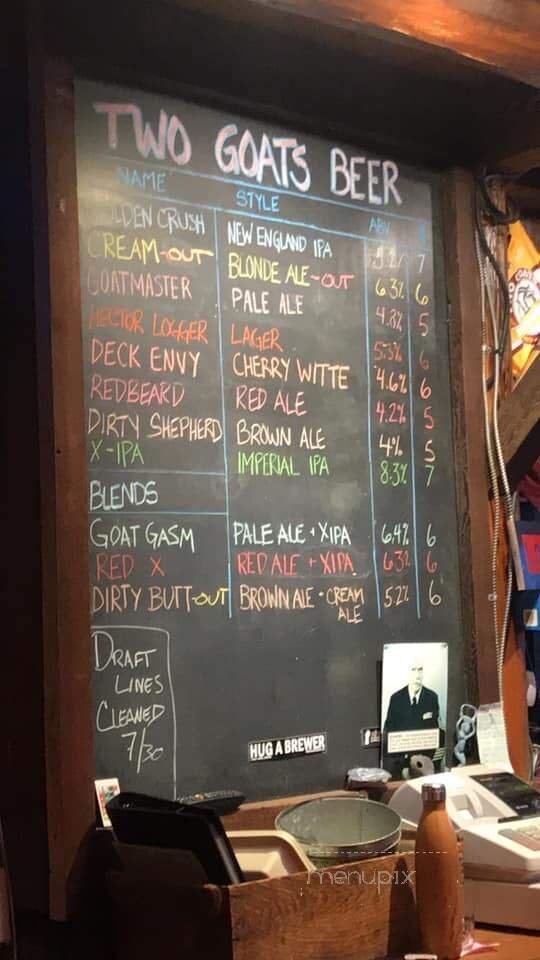 TWO GOATS BEER
NAME STYLE ABV $
GOLDEN CRUSH NEW ENGLAND IPA 7
CREAM-OUT BLONDE ALE-OUT 6.3% 6
GOATMASTER PALE ALE 4.8% 5
HECTOR LOGGER LAGER 5.5% 6
DECK ENVY CHERRY WITTE 4.6% 6
REDBEARD RED ALE 4.2% 5
DIRTY SHEPHERD BROWN ALE 4% 5
X-IPA IMPERIAL IPA 8.3% 7
BLENDS
GOAT GASM PALE ALE + XIPA 6.4% 6
RED X RED ALE + XIPA 6.3% 6
DIRTY BUTT-OUT BROWN ALE + CREAM ALE 5.2% 6
DRAFT
LINES
CLEANED
7/30
HUG A BREWER
menupix